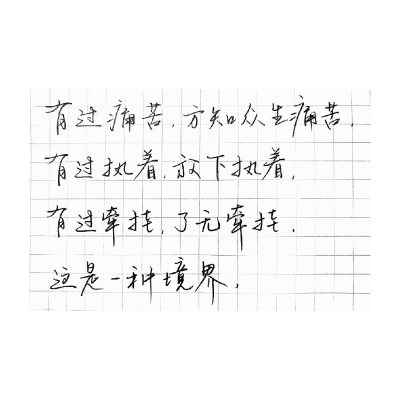 有过痛苦,方知众生痛苦,
有过执着,放下执着,
有过牵挂,了无牵挂.
这是一种境界,